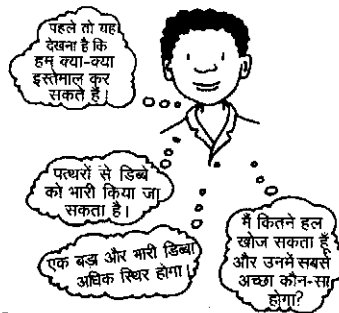 पहले तो यह
देखना है कि
हम क्या-क्या
इस्तेमाल कर
सकते हैं।
पत्थरों से डिब्बे
को भारी किया जा
सकता है।
एक बड़ा और भारी डिब्बा
अधिक स्थिर होगा।
मैं कितने हल
खोज सकता हूँ
और उनमें सबसे
अच्छा कौन-सा
होगा?